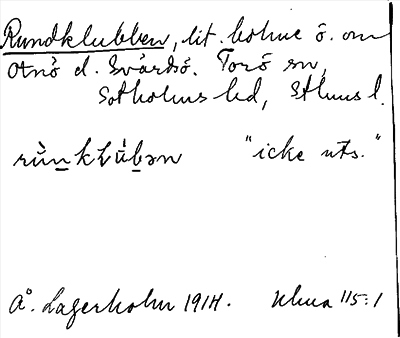 Rundklubben, lit. holme ö. om
Otnö el. Svärdsö. Torö sn,
Sotholms hd, Sthms l.
rùn̲kɫúb̲ən "icke uts."
Å. Lagerholm 1914. Uhua 115:1